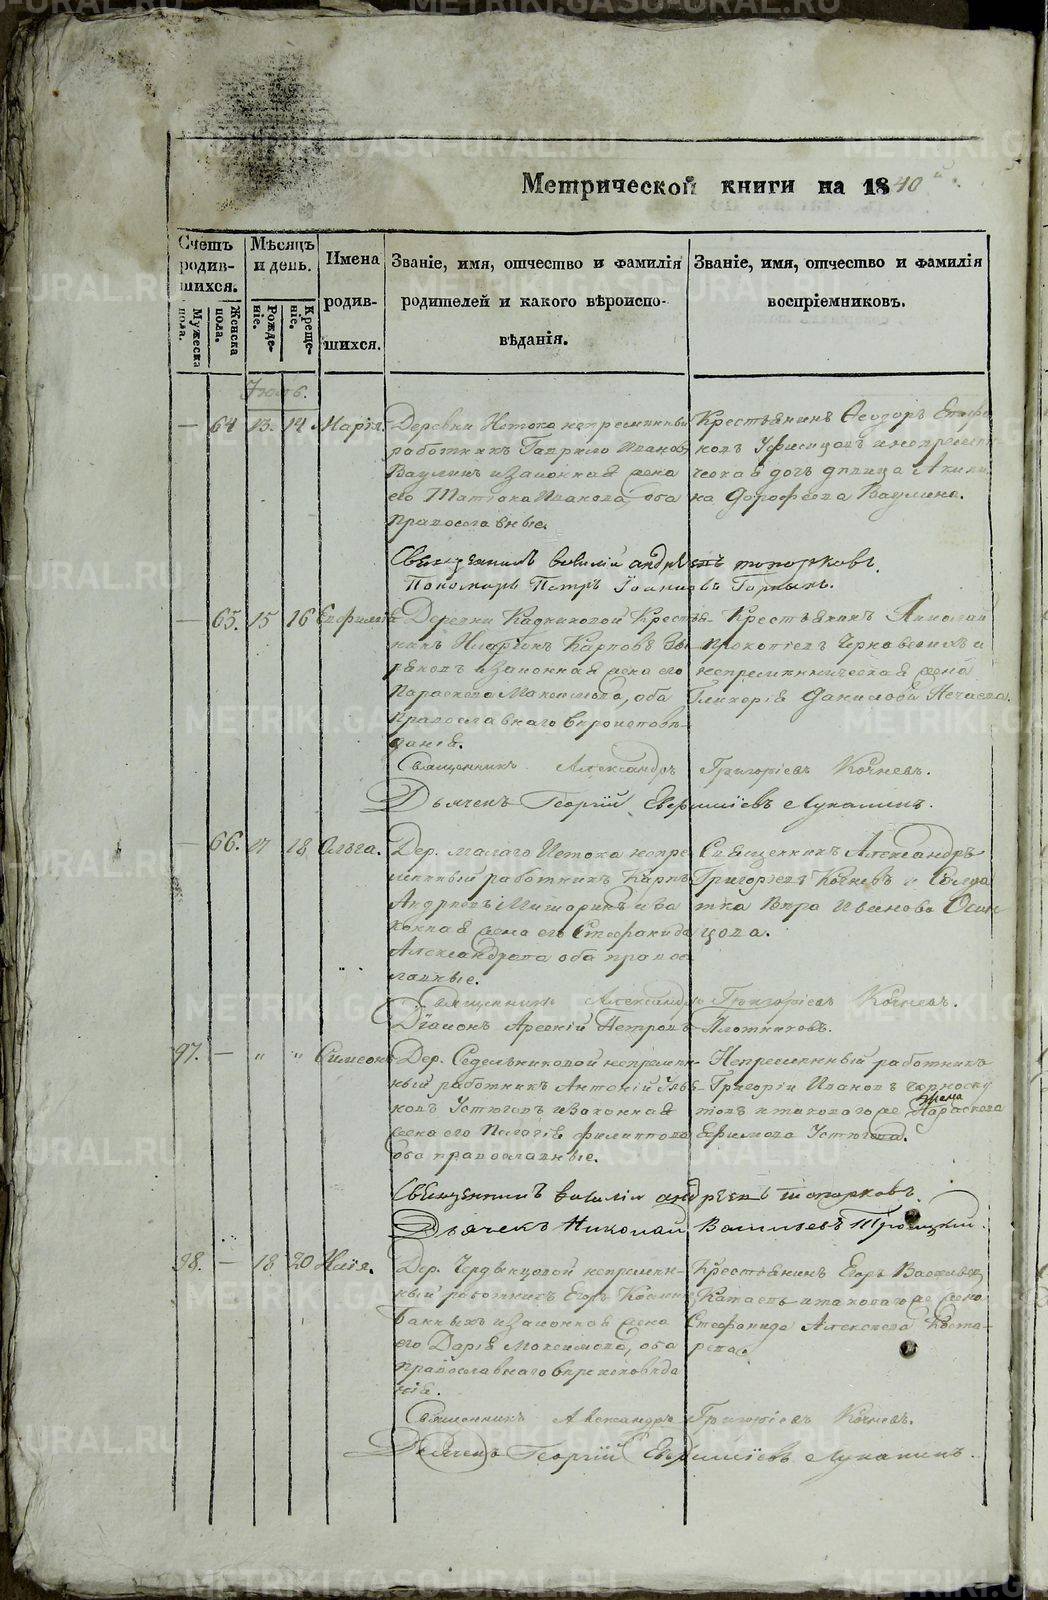 Метрической книги на 1840
Счетъ родив-шихся.
Мужеска пола.
Женска пола.
Мѣсяцъ и день.
Рожде-ніе.
Креще-ніе.
Имена родив-шихся.
Званіе, имя, отчество и фамилія родителей и какого вѣроиспо-вѣданія.
Званіе, имя, отчество и фамилія воспріемниковъ.
Іюль.
— 64 13. 14 Марія.
Деревни Истока непременный
работникъ Гаврило Ивановъ
Ваулинъ и законная жена
его Татіана Иванова, оба
православные.
Крестьянинъ Ѳеодоръ
ческая дочь девица Акили-
на Дорофеева Ваулина.
Священникъ Василій Андреевъ Топорковъ.
Пономарь Петръ Іоанновъ Горныхъ.
— 65. 15 16 Евфимія
Деревни Кадниковой Кресть-
нинъ Иларіонъ Карповъ
и законная жена его
Параскева Максимова, оба
православнаго вероисповѣ-
данія.
Крестьянинъ Николай
Прокопіевъ Черновскихъ и
непременническая жена
Гликерія Данилова Нечаева.
Священникъ Александръ Григоріевъ Кочневъ.
Дьячекъ Георгій Евфиміевъ Лукацинъ.
— 66. 17 18 Ольга.
Дер. Малаго Истока непре-
менный работникъ Карпъ
Андреевъ и за-
конная жена его Стефанида
Александрова оба правос-
лавные.
Священникъ Александръ
Григоріевъ Кочневъ и Солда-
тка Вера Иванова Осин-
цова.
Священникъ Александръ Григоріевъ Кочневъ.
Діаконъ Арсеній Петровъ Плотниковъ.
97. — " " Симеонъ
Дер. Седельниковой непремен-
ный работникъ Антоній
Устюговъ и законная
жена его Пелагія Филиппова
оба православные.
Непременный работникъ
Григорій Ивановъ Черноску-
товъ и таковаго же жена Параскева
Ефимова Устюгова.
Священникъ Василій Андреевъ Топорковъ.
Дьячекъ Николай Васильевъ Троицкій.
98. — 18 20 Илія.
Дер. непремен-
ный работникъ Егоръ
Банныхъ и законная жена
его Дарія Максимова, оба
православнаго вероисповѣда
нія.
Крестьянинъ Егоръ Васильевъ
и таковаго же жена
Стефанида Алексеева Коста-
рева.
Священникъ Александръ Григоріевъ Кочневъ.
Дьячекъ Георгій Евфиміевъ Лукацинъ.
METRIKI.GASO-URAL.RU